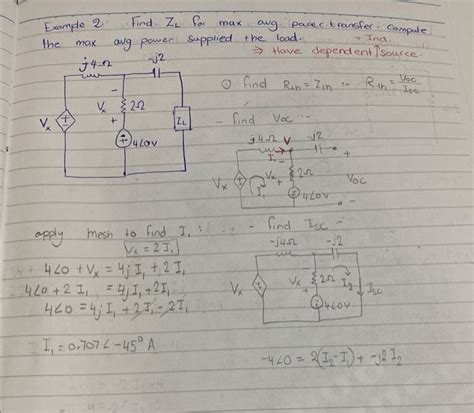 Example 2: Find ZL for max avg power transfer. Compute
the max avg power supplied the load. + Ind.
⇒ Have dependent source.
j4Ω -j2
- Vx + 2Ω
Vx + - 4∠0V ZL
① find Rin = Zin :- Rin = Voc/Isc
- find Voc :-
j4Ω V -j2
I1 - +
Vx I1 Vx 2Ω Voc
+ 4∠0V -
apply mesh to find I1 :
Vx = 2I1
4∠0 + Vx = 4j I1 + 2I1
4∠0 + 2I1 = 4j I1 + 2I1
4∠0 = 4j I1 + 2I1 - 2I1
I1 = 0.707∠-45° A
- find Isc :-
-j4Ω -j2
Vx - Vx + 2Ω I2 Isc
4∠0V
-4∠0 = 2(I2-I1) + -j2 I2